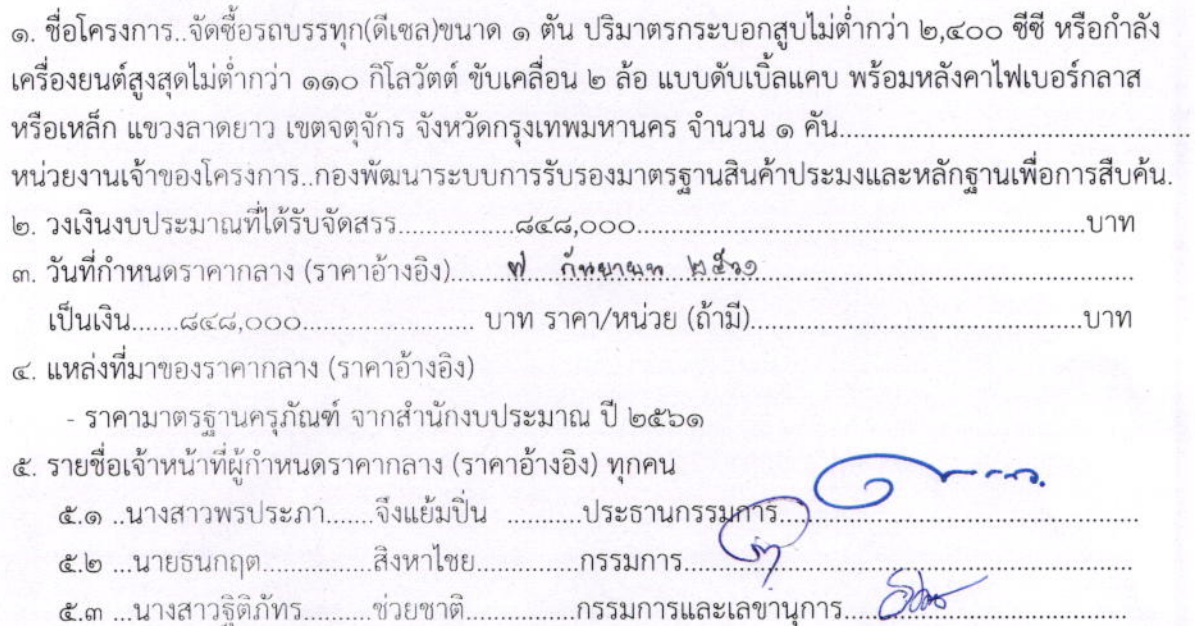 ๑. ชื่อโครงการ..จัดซื้อรถบรรทุก(ดีเซล)ขนาด ๑ ตัน ปริมาตรกระบอกสูบไม่ต่ำกว่า ๒,๔๐๐ ซีซี หรือกำลัง
เครื่องยนต์สูงสุดไม่ต่ำกว่า ๑๑๐ กิโลวัตต์ ขับเคลื่อน ๒ ล้อ แบบดับเบิ้ลแคบ พร้อมหลังคาไฟเบอร์กลาส
หรือเหล็ก แขวงลาดยาว เขตจตุจักร จังหวัดกรุงเทพมหานคร จำนวน ๑ คัน................................................
หน่วยงานเจ้าของโครงการ..กองพัฒนาระบบการรับรองมาตรฐานสินค้าประมงและหลักฐานเพื่อการสืบค้น.
๒. วงเงินงบประมาณที่ได้รับจัดสรร.................๘๔๘,๐๐๐.................................................................บาท
๓. วันที่กำหนดราคากลาง (ราคาอ้างอิง)........๗ กันยายน ๒๕๖๑........................................................
เป็นเงิน.......๘๔๘,๐๐๐......................... บาท ราคา/หน่วย (ถ้ามี)................................................บาท
๔. แหล่งที่มาของราคากลาง (ราคาอ้างอิง)
- ราคามาตรฐานครุภัณฑ์ จากสำนักงบประมาณ ปี ๒๕๖๑
๕. รายชื่อเจ้าหน้าที่ผู้กำหนดราคากลาง (ราคาอ้างอิง) ทุกคน
๕.๑ ..นางสาวพรประภา.......จึงแย้มปิ่น ...........ประธานกรรมการ....................................................
๕.๒ ...นายธนกฤต................สิงหาไชย...............กรรมการ..................................................................
๕.๓ ...นางสาวฐิติภัทร..........ช่วยชาติ................กรรมการและเลขานุการ.........................................